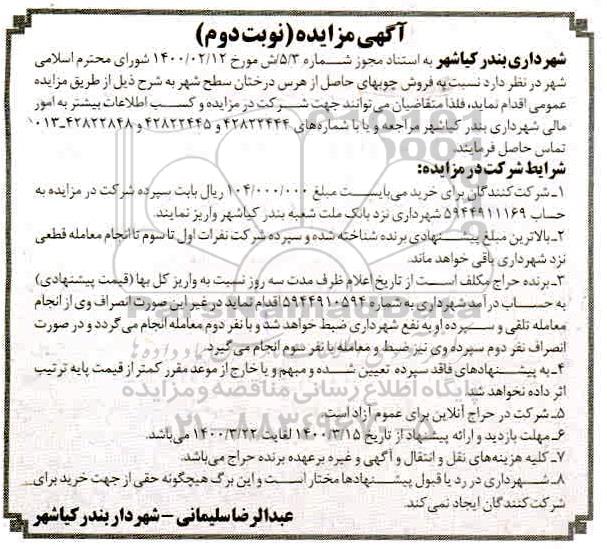 آگهی مزایده (نوبت دوم)
شهرداری بندر کیاشهر به استناد مجوز شماره ۵/۳/ش مورخ ۱۴۰۰/۰۲/۱۲ شورای محترم اسلامی
شهر در نظر دارد نسبت به فروش چوبهای حاصل از هرس درختان سطح شهر به شرح ذیل از طریق مزایده
عمومی اقدام نماید، فلذا متقاضیان می توانند جهت شرکت در مزایده و کسب اطلاعات بیشتر به امور
مالی شهرداری بندر کیاشهر مراجعه و یا با شماره‌های ۴۲۸۲۲۴۴۴ و ۴۲۸۲۲۴۴۵ و ۴۲۸۲۲۸۴۸-۰۱۳
تماس حاصل فرمایند.
شرایط شرکت در مزایده:
۱- شرکت‌کنندگان برای خرید می‌بایست مبلغ ۱۰۴/۰۰۰/۰۰۰ ریال بابت سپرده شرکت در مزایده به
حساب ۵۹۴۴۹۱۱۱۶۹ شهرداری نزد بانک ملت شعبه بندر کیاشهر واریز نمایند.
۲- بالاترین مبلغ پیشنهادی برنده شناخته شده و سپرده شرکت نفرات اول تا سوم تا انجام معامله قطعی
نزد شهرداری باقی خواهد ماند.
۳- برنده حراج مکلف است از تاریخ اعلام ظرف مدت سه روز نسبت به واریز کل بها (قیمت پیشنهادی)
به حساب درآمد شهرداری به شماره ۵۹۴۴۹۱۰۵۹۴ اقدام نماید در غیر این صورت انصراف وی از انجام
معامله تلقی و سپرده او به نفع شهرداری ضبط خواهد شد و با نفر دوم معامله انجام می‌گردد و در صورت
انصراف نفر دوم سپرده وی نیز ضبط و معامله با نفر سوم انجام می‌گیرد.
۴- به پیشنهادهای فاقد سپرده تعیین شده و مبهم و یا خارج از موعد مقرر کمتر از قیمت پایه ترتیب
اثر داده نخواهد شد.
۵- شرکت در حراج آنلاین برای عموم آزاد است.
۶- مهلت بازدید و ارائه پیشنهاد از تاریخ ۱۴۰۰/۳/۱۵ لغایت ۱۴۰۰/۳/۲۲ می‌باشد.
۷- کلیه هزینه‌های نقل و انتقال و آگهی و غیره برعهده برنده حراج می‌باشد.
۸- شهرداری در رد یا قبول پیشنهادها مختار است و این برگ هیچگونه حقی از جهت خرید برای
شرکت‌کنندگان ایجاد نمی‌کند.
عبدالرضا سلیمانی - شهردار بندر کیاشهر
ParsNamadData
پایگاه اطلاع رسانی مناقصه و مزایده